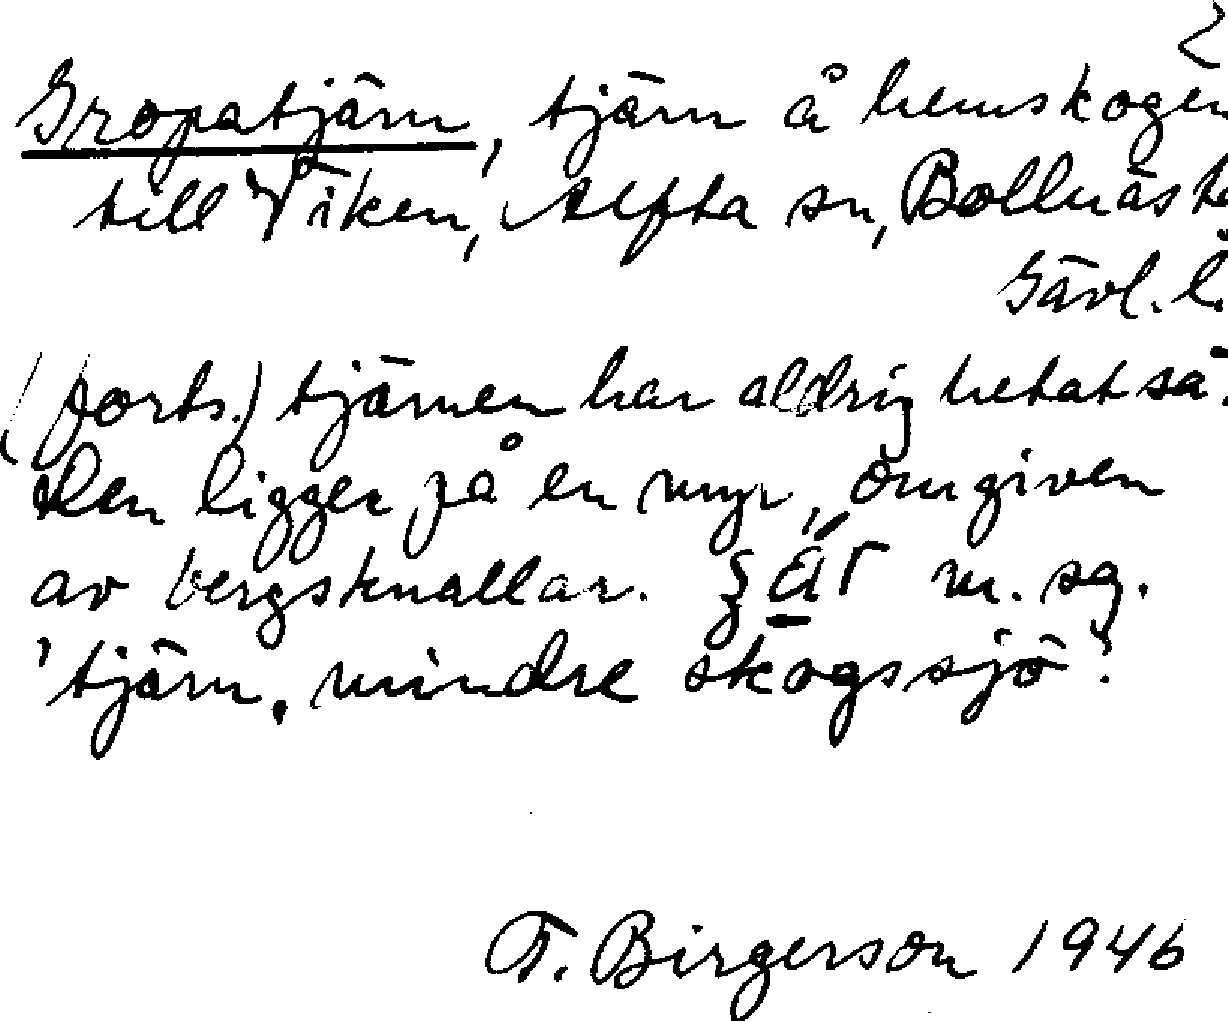 2
Gropatjärn, tjärn å hemskogen
till Viken, Alfta sn, Bollnäs
Gävl. l.
(forts.) tjärnen har aldrig hetat så.
Den ligger på en myr, omgiven
av bergsknallar. m. sg.
'tjärn, mindre skogssjö'.
F. Birgerson 1946